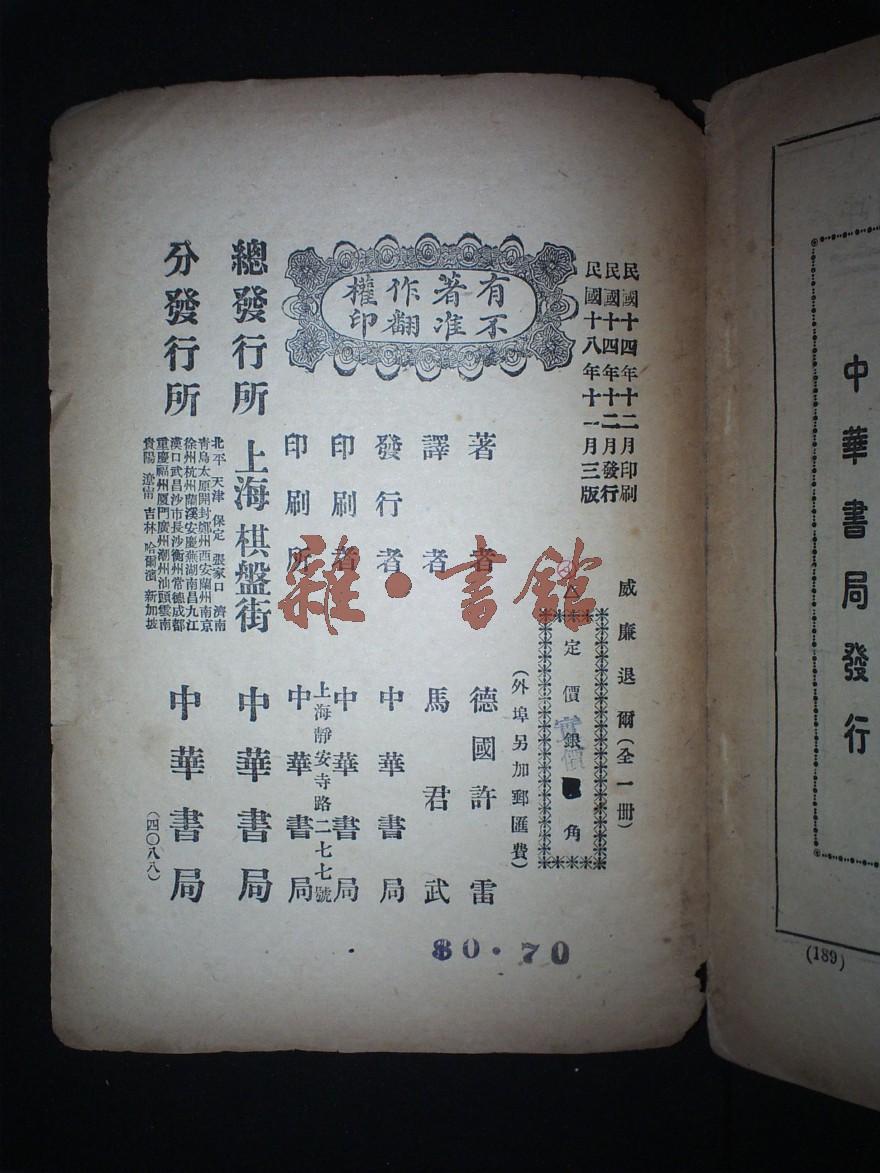 民國十四年十二月印刷
民國十四年十二月發行
民國十八年十一月三版
威廉退爾(全一册)
定價銀角
實價
(外埠另加郵匯費)
有著作權
不准翻印
著者 德國許雷
譯者 馬君武
發行者 中華書局
印刷者 中華書局
上海靜安寺路二七七號
印刷所 中華書局
總發行所 上海棋盤街 中華書局
分發行所
北平 天津 保定 張家口 濟南
青島太原開封鄭州西安蘭州南京
徐州杭州蘭溪安慶蕪湖南昌九江
漢口武昌沙市長沙衡州常德成都
重慶福州厦門廣州潮州汕頭雲南
貴陽 遼甯 吉林 哈爾濱 新加坡
中華書局
(四〇八八)
80.70
雜·書館
中華書局發行
(189)